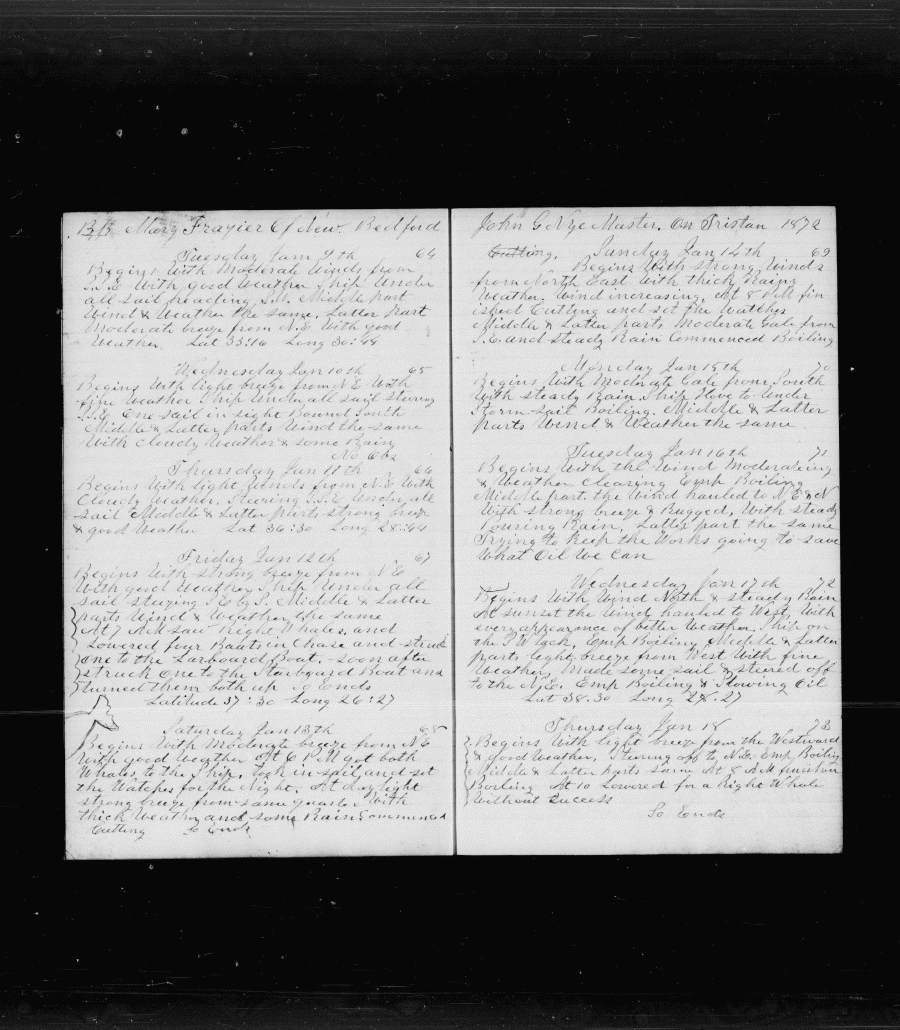 Mary Frazier Of New. Bedford
Tuesday Jan 9th 64
Begins With Moderate Winds from
S.E With good Weather Ship Under
all sail heading S.W. Middle part
Wind & Weather the same. Latter part
Moderate breeze from N.E With good
Weather. Lat 33:16 Long 30:44
Wednesday Jan 10th 65
Begins With light breeze from N.E With
fine Weather Ship Under all sail stearing
S.E One sail in sight Bound South
Middle & Latter parts Wind the same
With Cloudy Weather & some Rain
No Obs
Thursday Jan 11th 66
Begins With light Winds from N.E With
Cloudy Weather. Steering S.S.E Under all
sail Middle & Latter parts strong breeze
& good Weather Lat 36:30 Long 28:44
Friday Jan 12th 67
Begins With strong breeze from N.E
With good Weather Ship Under all
sail steering S.E by S. Middle & Latter
parts Wind & Weather the same
At 7 AM saw Right Whales, and
Lowered four Boats in Chase and struck
one to the Larboard Boat. Soon after
struck One to the Starboard Boat and
turned them both up So Ends
Latitude 37:30 Long 26:27
Saturday Jan 13th 68
Begins With Moderate breeze from N.E
With good Weather At 6 P.M got both
Whales to the Ship, Took in sail and set
the Watches for the Night. At daylight
strong breeze from same quarter With
thick Weather and some Rain Commenced
Cutting So Ends
John G Nye Master. On Tristan 1872
Cutting. Sunday Jan 14th 69
Begins With strong Winds
from North East With thick Rainy
Weather. Wind increasing, At 8 P.M fin
ished Cutting and set the Watches
Middle & Latter parts Moderate Gale from
S.E. and steady Rain Commenced Boiling
Monday Jan 15th 70
Begins With Moderate Gale from South
With steady Rain. Ship Hove to Under
Storm sail Boiling. Middle & Latter
parts Wend & Weather the same
Tuesday Jan 16th 71
Begins With the Wind Moderateing
& Weather Clearing Emp Boiling
Middle part the Wind hauled to N.E & N
With strong breeze & Rugged, With steady
Pouring Rain, Latter part the same
Trying to keep the Works going to save
What Oil We Can
Wednesday Jan 17th 72
Begins With Wind North & steady Rain
At sunset the Wind hauled to West, With
every appearance of better Weather. Ship on
the S.W tack, Emp Boiling Middle & Latter
parts light breeze from West With fine
Weather, Made some sail & steered off
to the N.E. Emp Boiling & Stowing Oil
Lat 38.30 Long 27
Thursday Jan 18 73
Begins With light breeze from the Westward
& good Weather, Steering off to N.E. Emp Boiling
Middle & Latter parts same At 8 A.M finished
Boiling At 10 Lowered for a Right Whale
Without Success
So Ends